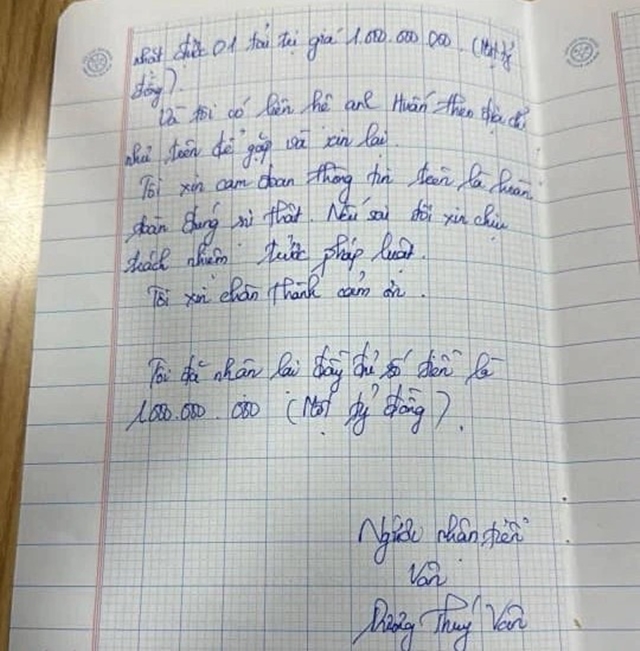 nhặt được 01 túi trị giá 1.000.000.000. (Một tỷ
đồng).
Và tôi có liên hệ anh Huấn theo địa chỉ
như trên để gặp và xin lại.
Tôi xin cam đoan thông tin trên là hoàn
toàn đúng sự thật. Nếu sai tôi xin chịu
trách nhiệm trước pháp luật.
Tôi xin chân thành cảm ơn.
Tôi đã nhận lại đầy đủ số tiền là
1.000.000.000 (Một tỷ đồng).
Người nhận tiền
Vân
Thúy Vân